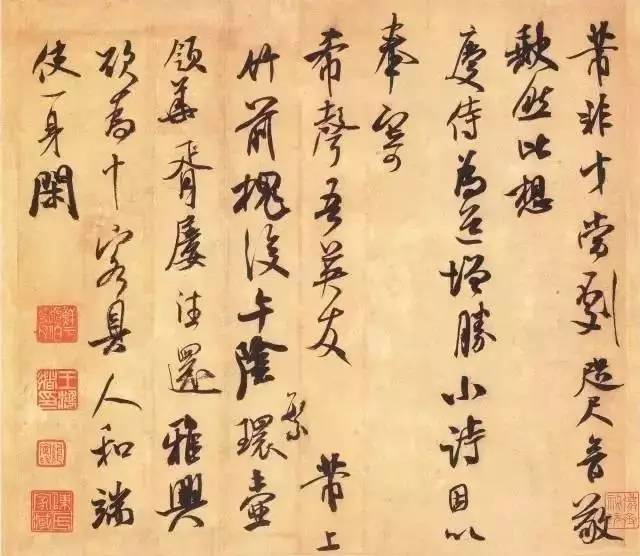 芾非才當劇咫尺音敬
缺然比想
慶侍為道增勝小詩因以
奉寄
希聲吾英友 芾上
竹前槐後午陰環壺
繁
領華胥屢往還雅興
欲為十客具人和端
使一身閑